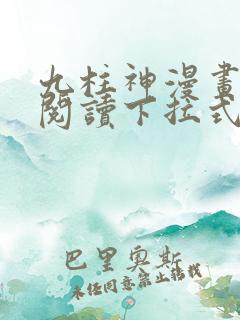 九柱神漫畫
閱讀下拉式
巴里奧斯
未經同意禁止轉載